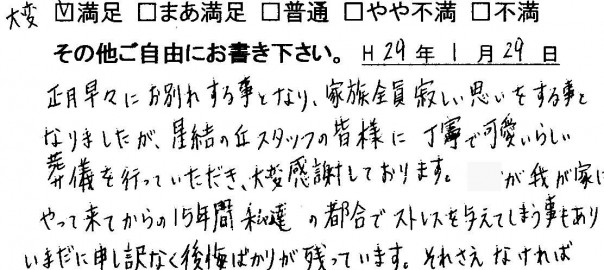 大変 ☑満足 □まあ満足 □普通 □やや不満 □不満
その他ご自由にお書き下さい。 H29年1月29日
正月早々にお別れする事となり、家族全員寂しい思いをする事と
なりましたが、星結の丘スタッフの皆様に丁寧で可愛いらしい
葬儀を行っていただき、大変感謝しております。 が我が家に
やって来てからの15年間私達の都合でストレスを与えてしまう事もあり
いまだに申し訳なく後悔ばかりが残っています。それさえなければ